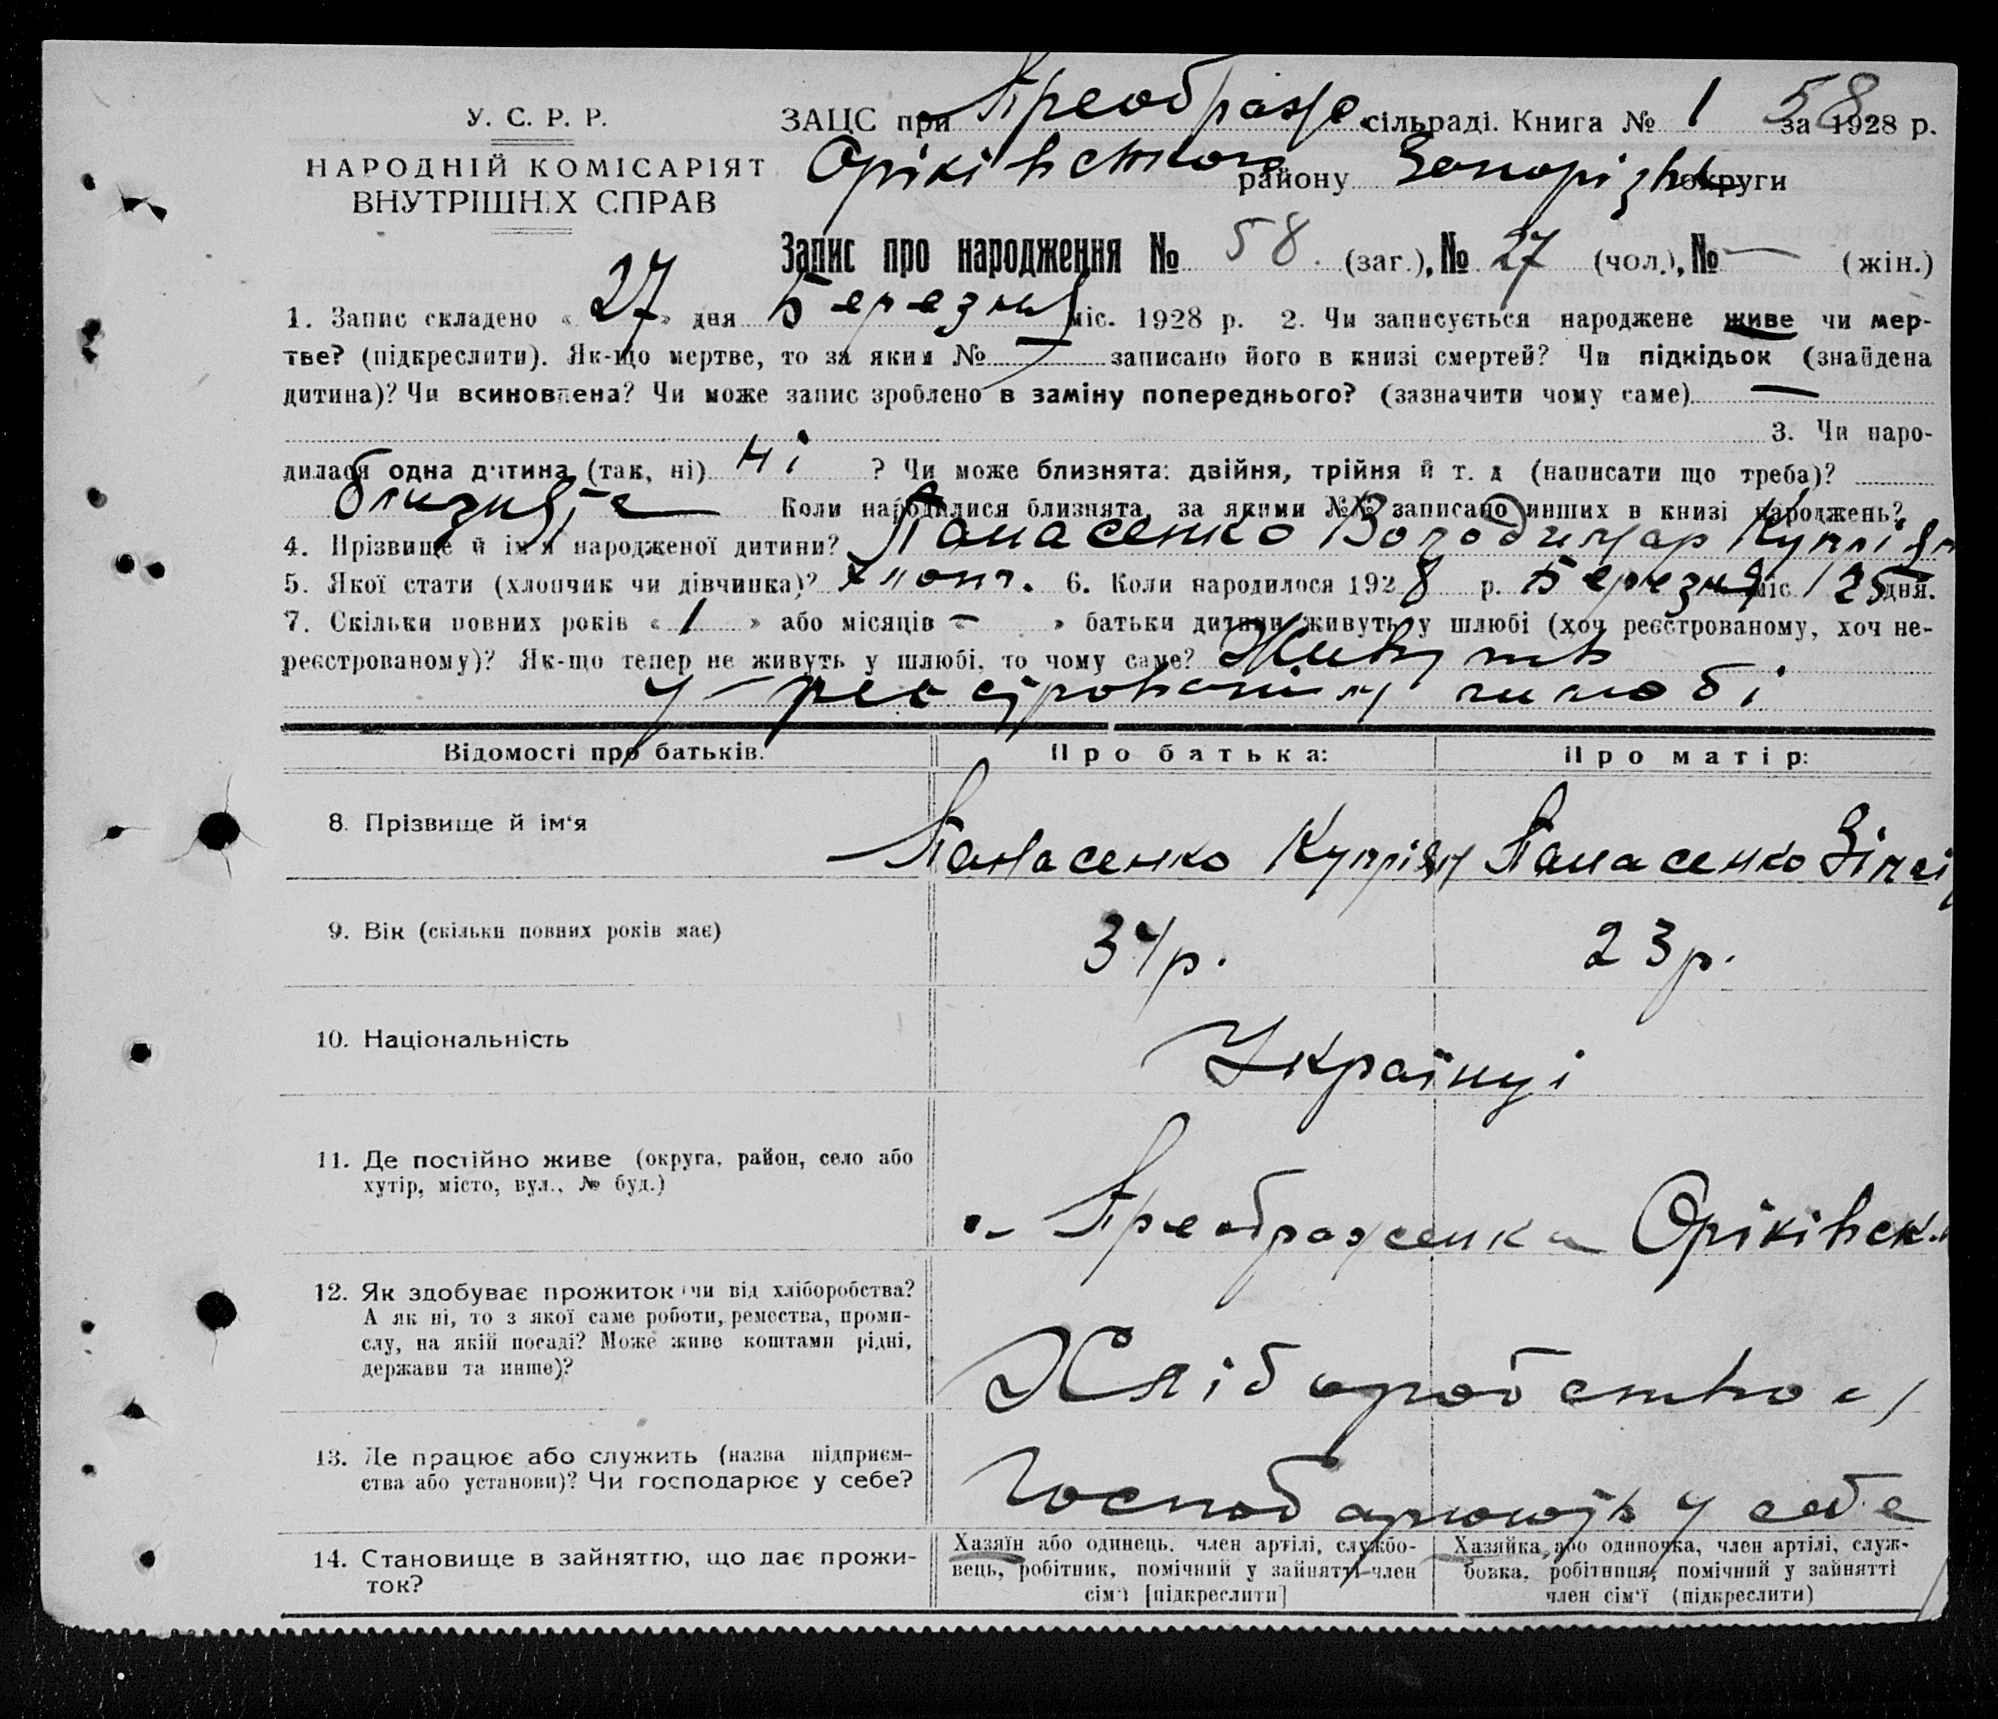 У. С. Р. Р. ЗАЦС при Преображе. сільраді. Книга № 1 за 1928 р. 58
НАРОДНІЙ КОМІСАРІЯТ ВНУТРІШНІХ СПРАВ
Оріківського району Запоріжк округи
Запис про народження № 58. (заг.), № 27 (чол.), № — (жін.)
1. Запис складено « 27 » дня Березня міс. 1928 р. 2. Чи записується народжене живе чи мер-
тве? (підкреслити). Як-що мертве, то за яким № — записано його в книзі смертей? Чи підкідьок (знайдена
дитина)? Чи всиновлена? Чи може запис зроблено в заміну попереднього? (зазначити чому саме) —
3. Чи наро-
дилася одна дитина (так, ні) ні ? Чи може близнята: двійня, трійня й т. д (написати що треба)?
близнята Коли народилися близнята, за якими №№ записано инших в книзі народжень?
4. Прізвище й ім'я народженої дитини? Панасенко Володимар Купріян
5. Якої стати (хлопчик чи дівчинка)? хлопч. 6. Коли народилося 1928 р. Березня міс. 25 дня.
7. Скільки повних років « 1 » або місяців « — » батьки дитини живуть у шлюбі (хоч реєстрованому, хоч не-
реєстрованому)? Як-що тепер не живуть у шлюбі, то чому саме? Живуть
у реєстрованім шлюбі
Відомості про батьків. Про батька: Про матір:
8. Прізвище й ім'я Панасенко Купріян Панасенко
9. Вік (скільки повних років має) 34 р. 23 р.
10. Національність Українці
11. Де постійно живе (округа, район, село або
хутір, місто, вул., № буд.) Преображенка Оріківськ.
12. Як здобуває прожиток (чи від хліборобства?
А як ні, то з якої саме роботи, ремества, проми-
слу, на якій посаді? Може живе коштами рідні,
держави та инше)? Хліборобство
13. Де працює або служить (назва підприєм-
ства або установи)? Чи господарює у себе? Господарюють у себе
14. Становище в зайняттю, що дає прожи-
ток?
Хазяїн або одинець, член артілі, службо-
вець, робітник, помічний у зайнятті член
сім'ї [підкреслити]
Хазяйка, або одиночка, член артілі, служ-
бовка, робітниця, помічний у зайнятті
член сім'ї (підкреслити)